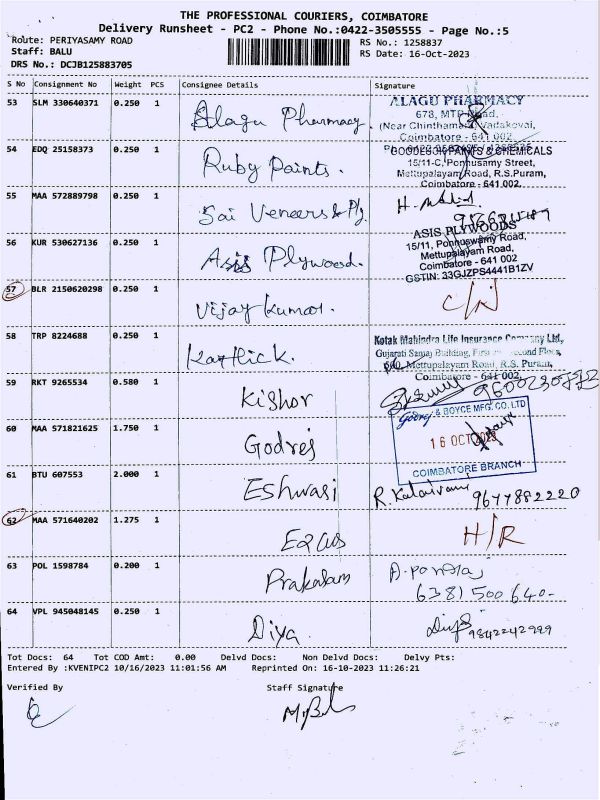 THE PROFESSIONAL COURIERS, COIMBATORE
Delivery Runsheet - PC2 - Phone No.:0422-3505555 - Page No.:5
Route: PERIYASAMY ROAD RS No.: 1258837
Staff: BALU RS Date: 16-Oct-2023
DRS No.: DCJB125883705
S No Consignment No Weight PCS Consignee Details Signature
53 SLM 330640371 0.250 1 Alagu Pharmacy
ALAGU PHARMACY
678, MTP Road,
(Near Chinthamani) Vadakovai,
Coimbatore - 641 002
54 EDQ 25158373 0.250 1 Ruby Paints.
PAINTS & CHEMICALS
15/11-C, Ponnusamy Street,
Mettupalayam Road, R.S.Puram,
Coimbatore - 641 002.
55 MAA 572889798 0.250 1 Sai Veneers & Ply
56 KUR 530627136 0.250 1 Asis Plywood.
ASIS PLYWOODS
15/11, Ponnuswamy Road,
Mettupalayam Road,
Coimbatore - 641 002
GSTIN: 33GJZPS4441B1ZV
57 BLR 2150620298 0.250 1 Vijay Kumar.
58 TRP 8224688 0.250 1 Karthick.
Kotak Mahindra Life Insurance Company Ltd,
Gujarati Samaj Building, First Second Floor,
Mettupalayam Road, R.S. Puram,
Coimbatore - 641 002.
59 RKT 9265534 0.580 1 Kishor
60 MAA 571821625 1.750 1 Godrej
Godrej & BOYCE MFG. CO. LTD
16 OCT 2023
COIMBATORE BRANCH
61 BTU 607553 2.000 1 Eshwari R. Kalaivani 9677882220
62 MAA 571640202 1.275 1 H/R
63 POL 1598784 0.200 1 Prakasam
6381500640-
64 VPL 945048145 0.250 1 Diya. 9842242999
Tot Docs: 64 Tot COD Amt: 0.00 Delvd Docs: Non Delvd Docs: Delvy Pts:
Entered By :KVENIPC2 10/16/2023 11:01:56 AM Reprinted On: 16-10-2023 11:26:21
Verified By Staff Signature